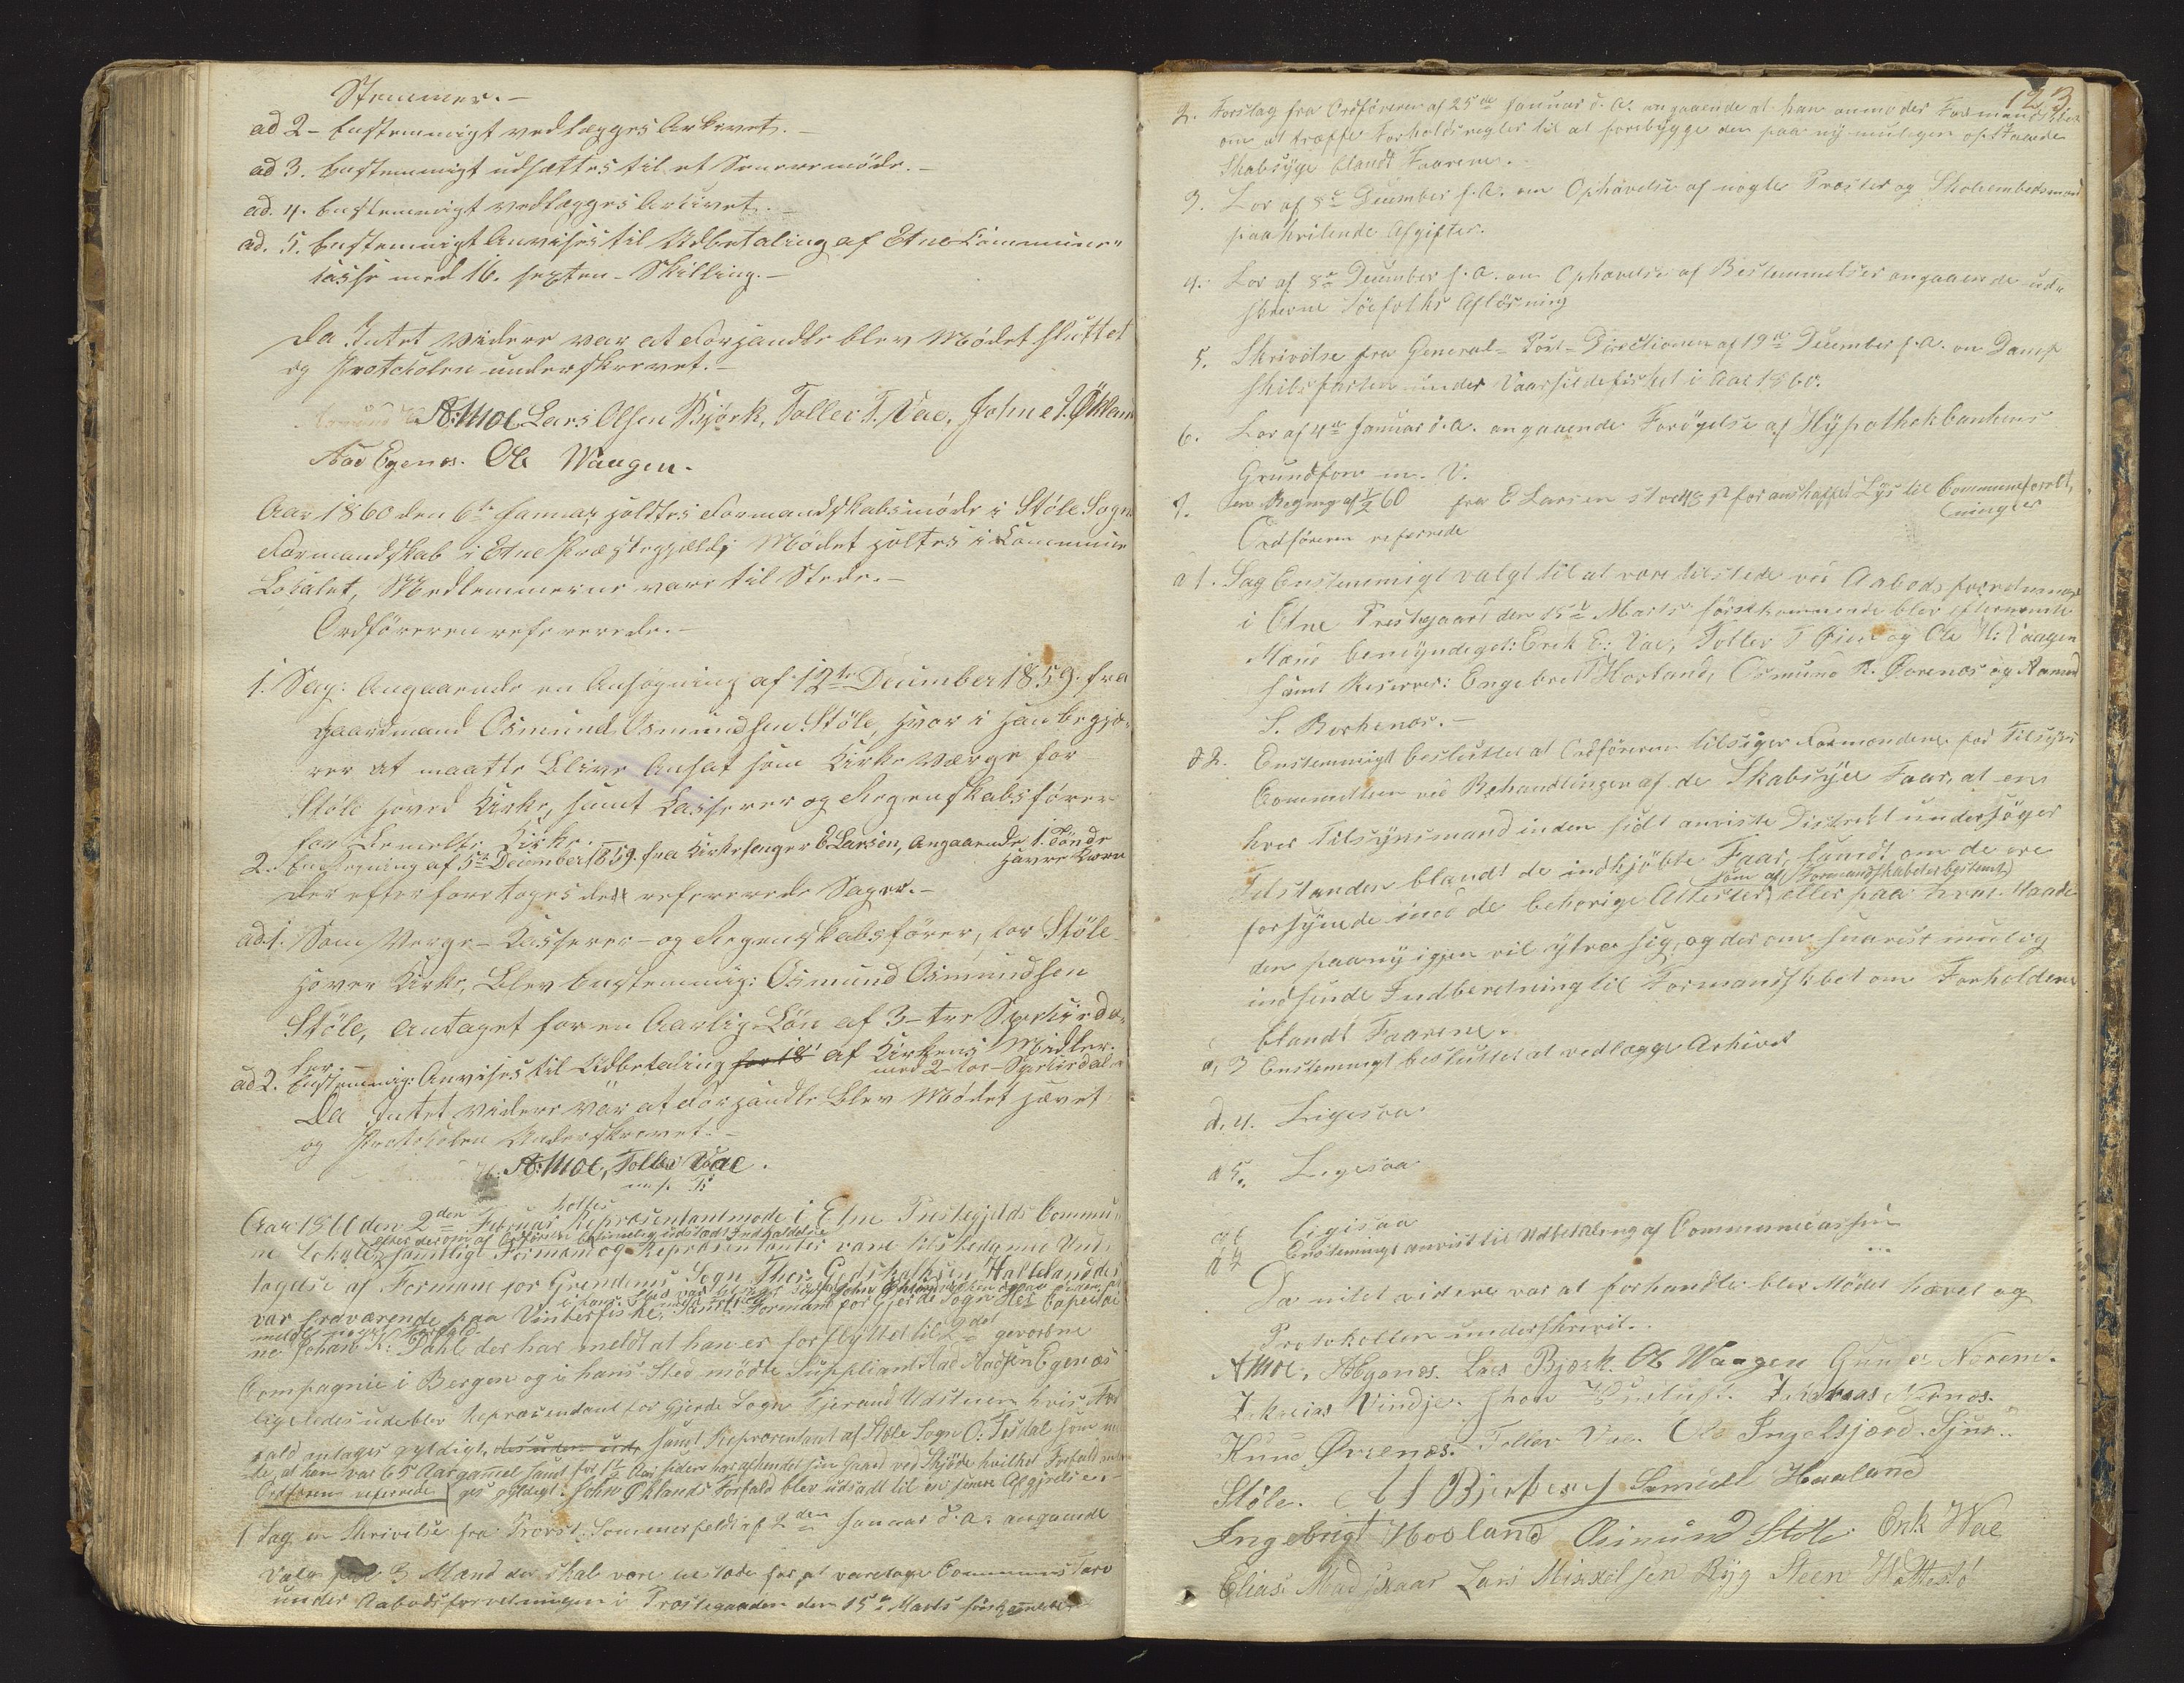 Stemmer.-
ad 2- Enstemmigt vedlægges Arkivet.-
ad 3. Enstemmigt udsættes til et Senere møde.-
ad. 4. Enstemmigt vedlægges Arkivet.-
ad. 5. Enstemmigt Anvises til Udbetaling af Etne Commune-
kasse med 16. sexten- Skilling.-
Da Intet videre var at Forhandle blev Mødet sluttet
og Protokolen underskrevet.-
A: Moe Lars Olsen Bjørk, Tollev T. Vae, John J. Økland
Aad Egenæs. Ole Waagen.
Aar 1860 den 6te Januar holdtes Formandskabsmøde i Støle Sogn
Formandskab i Etne Præstegjeld; Mødet holtes i Commune
Lokalet, Medlemmerne vare til Stede.-
Ordføreren refererede.-
1. Sag: Angaaende en Ansøgning af 12te December 1859. fra
Gaardmand Osmund Osmundsen Støle, hvor i han begjæ-
rer at maatte blive Ansat som Kirke Værge for
Støle Hoved Kirke, samt Kasserer og Regenskabsfører
for bemelte Kirke.
2. En Regning af 5te December 1859. fra Kirkesanger E Larsen, Angaaende 1. Tønde
Havre Korn
Der efter foretoges de refererede Sager.-
ad. 1. Som Verge- Kasserer- og Regenskabsfører, for Støle
Hoved Kirke, Blev Enstemmig: Osmund Osmundsen
Støle, Antaget for en Aarlig Løn af 3- tre Speciesda-
ler.-
ad 2. Enstemmig: Anvises til Udbetaling for 18 af Kirkens Midler.
med 2- to- Speciesdaler
Da Intet videre var at Forhandle blev Mødet hævet
og Protokolen Underskrevet.-
A: Moe, Tollev Vae.
holtes
Aar 1860 den 2den Februar Repræsentantmøde i Etne Prestegjelds Commu-
efter derom af Ordføreren betimelig udstædt Indkaldelse
ne Lokale, samtlige Formænd og Repræsentanter vare tilstede med Und-
tagelse af Formand for Grindems Sogn Thor Godskalksen Hatteland der
var fraværende paa Vinterfiske, samt Formand for Gjerde Sogn Hr Capitai
ne Johan K: Dahl der har meldt at han er forflyttet til 2det geworbne
Compagnie i Bergen og i hans Sted mødte Suppliant Aad Aadsen Egenæs
ligeledes udeblev Repræsendant for Gjerde Sogn Tjerand Udstuen hvis For
fald antages gyldigt, samt Repræsentant af Støle Sogn O. Tesdal som
at han var 65 Aar gamel samt for 1½ Aar siden har afhendet sin Gaard ved Skjøde hvilket Forfald
Ordføreren refererede ges gyldigt. John Øklands Forfald blev udsadt til en senere Afgjørelse.-
1 Sag en Skrivelse fra Provst Sommerfeldt af 2den Januar d: a: angaaende
Valg 3 Mænd der skal være tilstæde for at varetage Communens Tarv
under Aabodsforretningen i Præstegaarden den 15de Marts førstkommende
123
2. Forslag fra Ordføreren af 25de Januar d. a. angaaende at han anmoder Formandskabet
om at træffe Forholdsregler til at forebygge den paa ny muligen opstaaede
Skabsyge blandt Faarene.
3. Lov af 8de December f. a. om Ophævelse af nogle Præster og Skoleembedsmænd
paahvilende Afgifter.
4. Lov af 8de December f. a. om Ophævelse af Bestemmelser angaaende ud-
skrevne Søefolks Afløsning
5. Skrivelse fra General- Post- Directionen af 19de December f. a. om Damp
skibsfarten under Vaarsildefisket i Aar 1860.
6. Lov af 4de Januar d. a. angaaende Forøgelse af Hypothekbankens
Grundfond m. V.
7. En Regning af ½ 60 fra E Larsen stor 48 ß for anskaffet Lys til Communeforret,
ninger
Ordføreren refererede
a 1. Sag Enstemmigt valgt til at være tilstede ved Aabodsforretningen
i Etne Prestegaard den 15de Marts førstkommende blev efternevnte
Mænd bemyndiget: Erik E: Vae, Tollev T Øien og Ole H: Vaagen
samt Reserver: Engebret Hovland, Osmund R. Ørenæs og Aamund
S. Birkenæs.-
a 2. Enstemmigt besluttet at Ordføreren tilsiger Formændene for Tilsyns
Committeen ved Behandlingen af de Skabsyge Faar, at en
hver Tilsynsmand inden sidt anviste Distrikt undersøger
Tilstanden blandt de indkjøbte Faar, samdt om de ere
som af Formandskabet er bestemt
forsynede med de behørige Attester, eller paa hvad Maade
den paany igjen vil ytre sig, og derom snarest mulig
indsende Indberetning til Formandskabet om Forholdene
blandt Faarene.
a, 3 Enstemmigt besluttet at vedlægge Arkivet
d. 4. Ligesaa
a 5. Ligesaa
a 6 Ligesaa
a 7 Enstemmigt anvist til Udbetaling af Communecassen
Da intet videre var at forhandle blev Mødet hævet og
Protokollen underskrevet.
A Moe, A Egenæs. Lars Bjørk. Ole Waagen Gunder Nørem.
Zakarias Vindje. Zakarias Nernes.
Knud Øvrenæs. Tollev Vae. Ole Ingelsjord. Sjur
Støle. Haaland
Ingebrigt Hovland Osmund Støle Erik Wae
Elias Madskaar Lars Mikkelsen Ryg Steen Hattestø